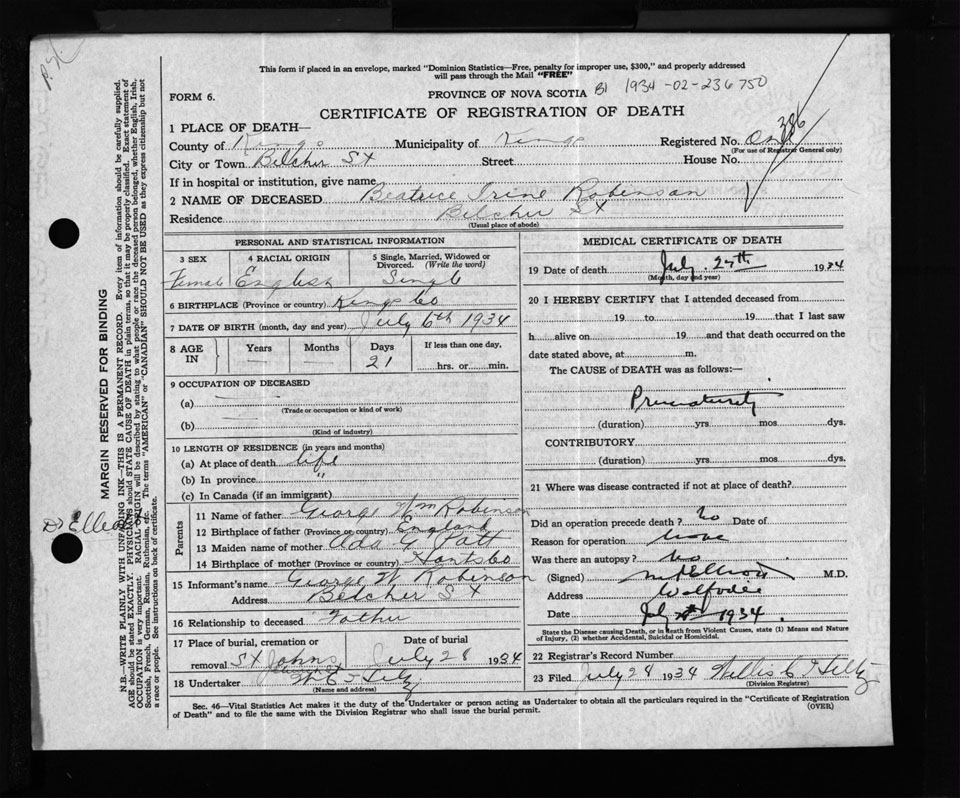 This form if placed in an envelope, marked "Dominion Statistics—Free, penalty for improper use, $300," and properly addressed
will pass through the Mail "FREE"
FORM 6.
PROVINCE OF NOVA SCOTIA 1934-02-236750
CERTIFICATE OF REGISTRATION OF DEATH
386
1 PLACE OF DEATH—
County of Kings Municipality of Kings Registered No.
(For use of Registrar General only)
City or Town Belcher St Street House No.
If in hospital or institution, give name
2 NAME OF DECEASED Beatrice Irine Robinson
Residence Belcher St
(Usual place of abode)
PERSONAL AND STATISTICAL INFORMATION
3 SEX 4 RACIAL ORIGIN 5 Single, Married, Widowed or
Divorced. (Write the word)
Female English Single
6 BIRTHPLACE (Province or country) Kings Co
7 DATE OF BIRTH (month, day and year) July 6th 1934
8 AGE IN Years Months Days If less than one day,
21 hrs. or min.
9 OCCUPATION OF DECEASED
(a)
(Trade or occupation or kind of work)
(b)
(Kind of industry)
10 LENGTH OF RESIDENCE (in years and months)
(a) At place of death life
(b) In province "
(c) In Canada (if an immigrant)
Parents
11 Name of father George Wm Robinson
12 Birthplace of father (Province or country) England
13 Maiden name of mother Ada
14 Birthplace of mother (Province or country) Hants Co
15 Informant's name George W Robinson
Address Belcher St
16 Relationship to deceased Father
17 Place of burial, cremation or Date of burial
removal St Johns July 28 1934
18 Undertaker
(Name and address)
MEDICAL CERTIFICATE OF DEATH
19 Date of death July 27th 1934
(Month, day and year)
20 I HEREBY CERTIFY that I attended deceased from
19 to 19 that I last saw
h alive on 19 and that death occurred on the
date stated above, at m.
The CAUSE of DEATH was as follows:—
Prematurity
(duration) yrs mos dys.
CONTRIBUTORY
(duration) yrs mos dys.
21 Where was disease contracted if not at place of death?
Did an operation precede death? No Date of
Reason for operation None
Was there an autopsy? No
(Signed) M.D.
Address Wolfville
Date July 1934
State the Disease causing Death, or in death from Violent Causes, state (1) Means and Nature
of Injury, (2) whether Accidental, Suicidal or Homicidal.
22 Registrar's Record Number
23 Filed July 28 1934
(Division Registrar)
Sec. 46—Vital Statistics Act makes it the duty of the Undertaker or person acting as Undertaker to obtain all the particulars required in the "Certificate of Registration
of Death" and to file the same with the Division Registrar who shall issue the burial permit. (OVER)
MARGIN RESERVED FOR BINDING
N.B.—WRITE PLAINLY WITH UNFADING INK—THIS IS A PERMANENT RECORD. Every item of information should be carefully supplied.
AGE should be stated EXACTLY. PHYSICIANS should STATE CAUSE OF DEATH in plain terms, so that it may be properly classified. Exact statement of
OCCUPATION is very important. RACIAL ORIGIN will be described by stating to what people or race the deceased person belonged, whether English, Irish,
Scottish, French, German, Russian, Ruthenian, etc. The terms "AMERICAN" or "CANADIAN" SHOULD NOT BE USED as they express citizenship but not
a race or people. See instructions on back of certificate.